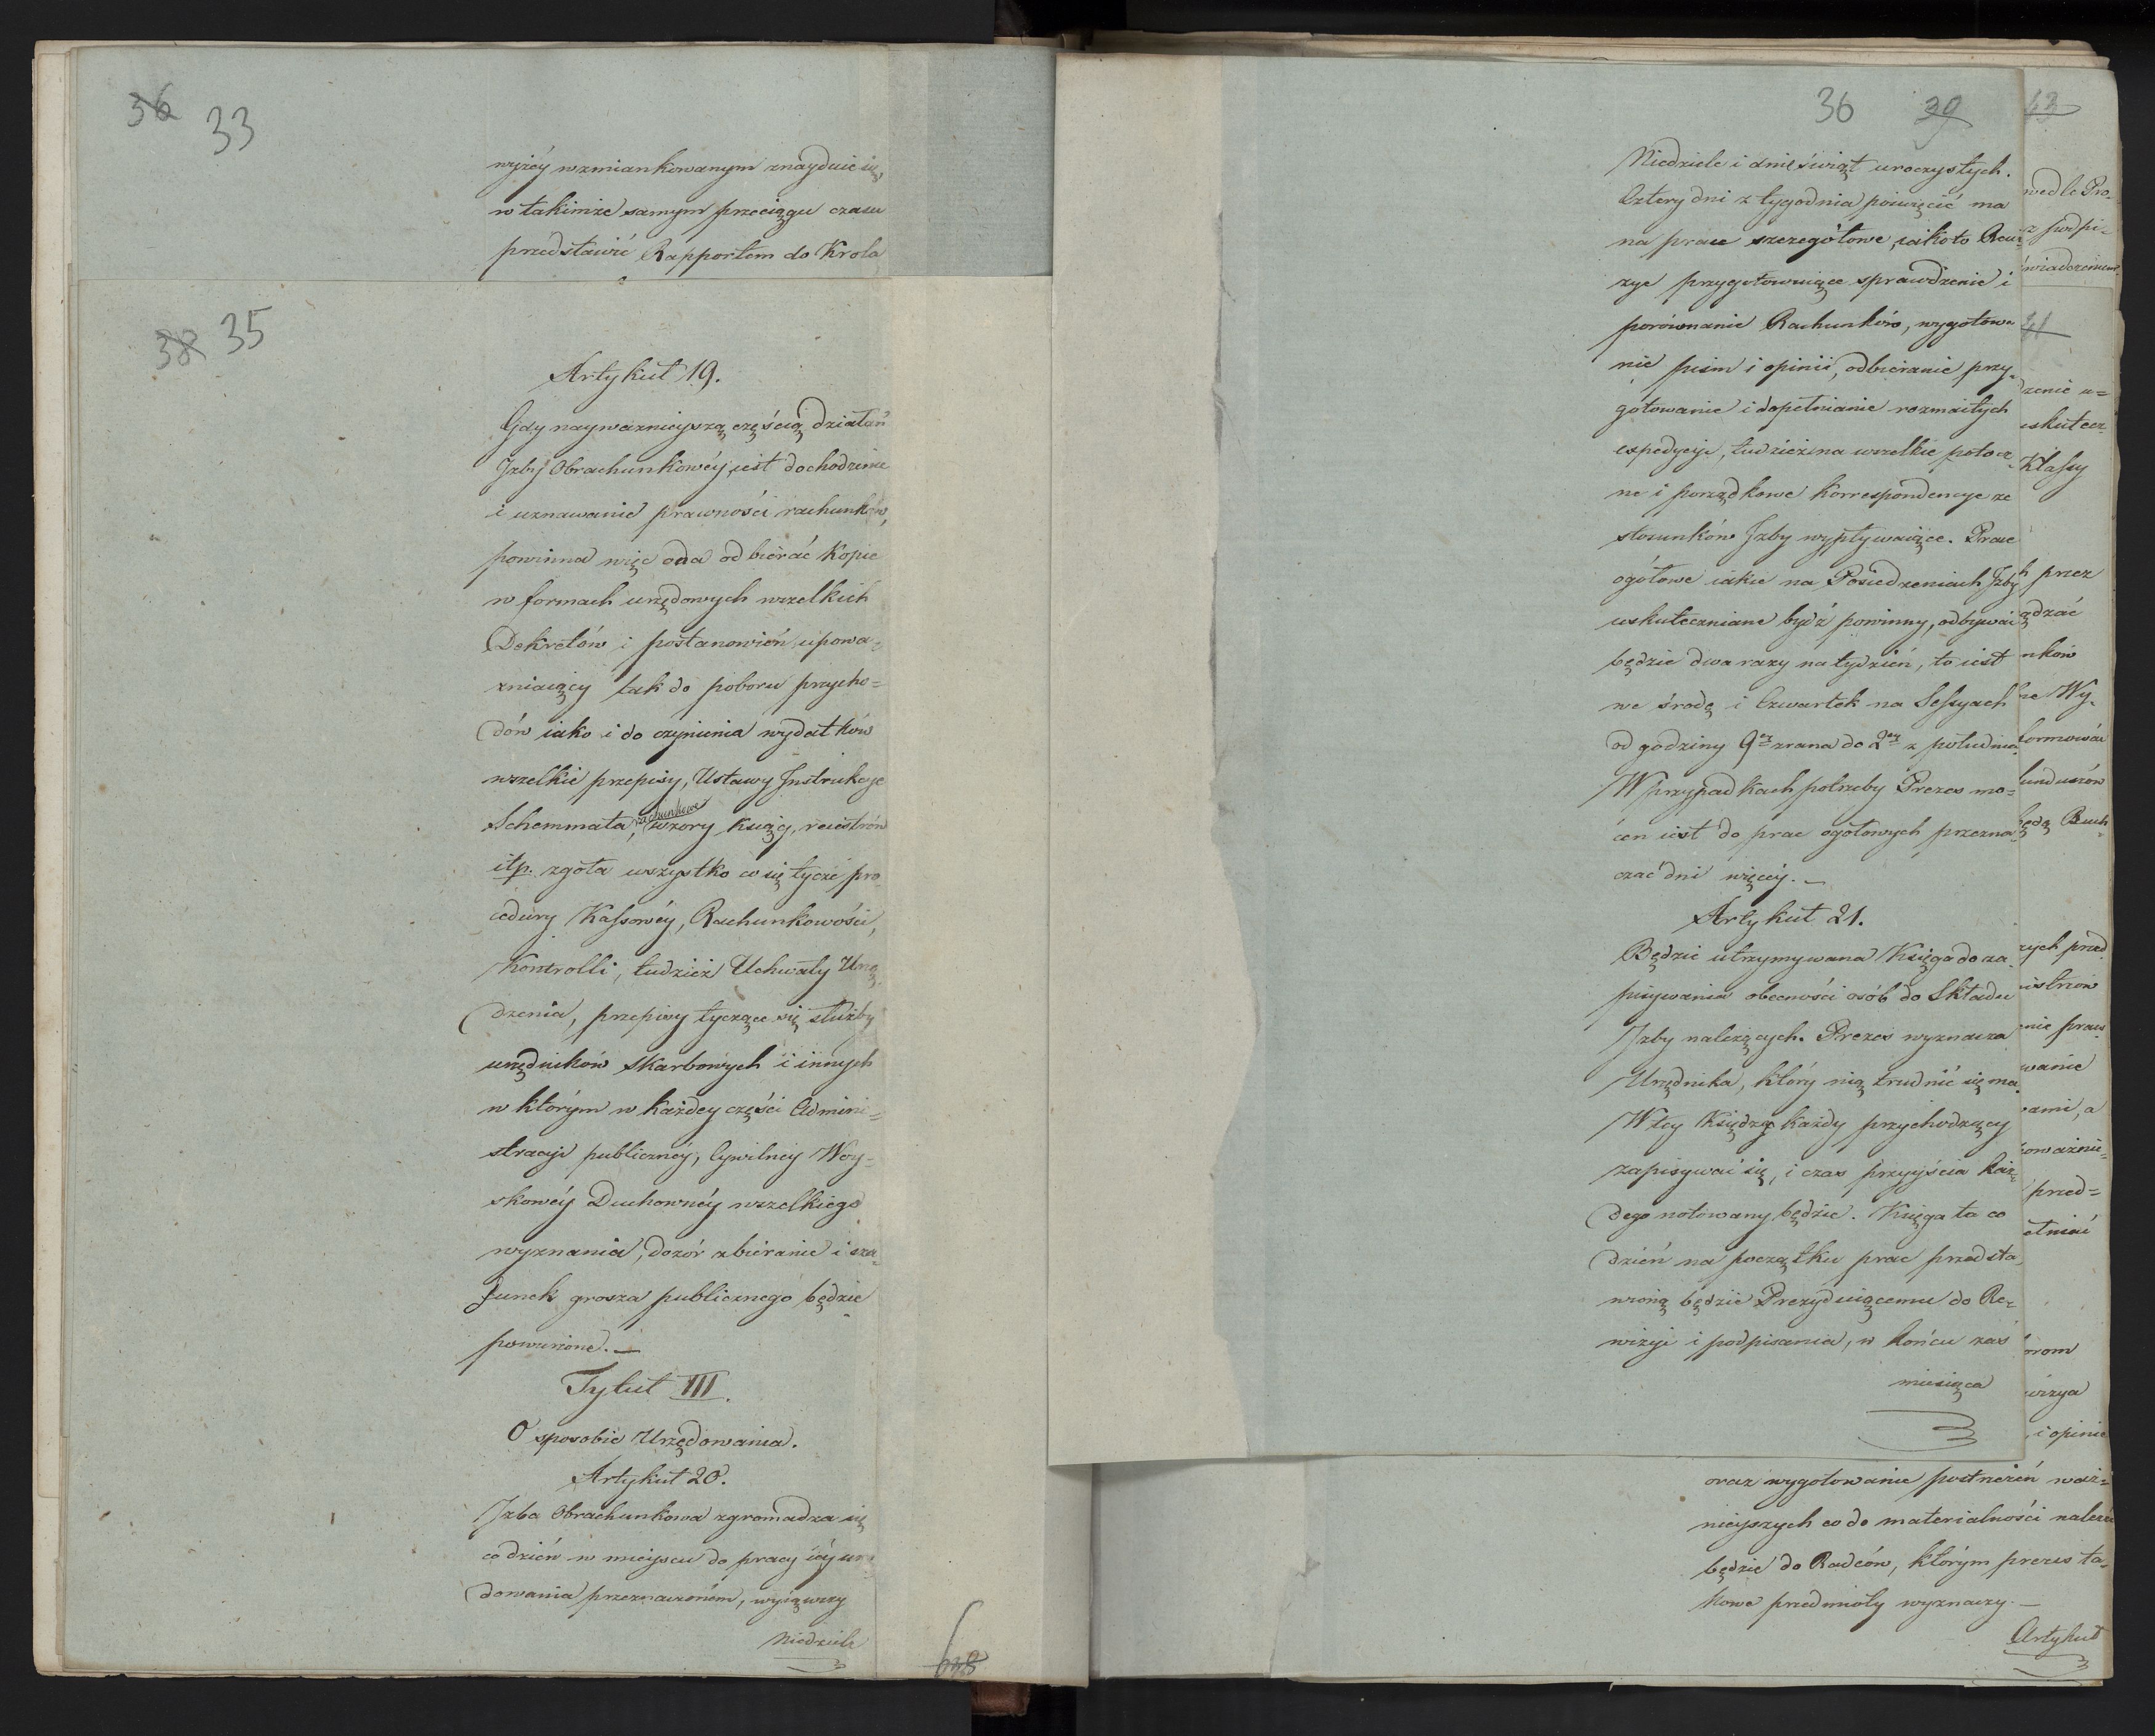 36 33
wyżéy wzmiankowanym znayduie się,
w takimże samym przeciągu czasu
przedstawić Rapportem do Krola
38 35
Artykuł 19.
Gdy nayważnieyszą częścią działań
Izby Obrachunkowéy iest dochodzenie
i uznawanie prawności rachunków,
powinna więc ona odbierać kopie
w formach urzędowych wszelkich
Dekretów i postanowień upowa-
żniaiący tak do poboru przycho=
dów iako i do czynienia wydatków
wszelkie przepisy, Ustawy Instrukcye
rachunkowe
Schemmata, wzory ksiąg, reiestrów
itp. zgoła wszystko co się tycze pro
cedury Kassowéy, Rachunkowości,
Kontrolli, tudzież Uchwały Urzą
dzenia, przepisy tyczące się służby
urzędników skarbowych i innych
w którym w każdey części Admini=
stracyi publicznéy, Cywilnéy Woy=
skowéy Duchownéy wszelkiego
wyznania, dozór zbieranie i sza=
funek grosza publicznego będzie
powierzone. —
Tytuł III.
O sposobie Urzędowania.
Artykuł 20.
Izba Obrachunkowa zgromadza się
co dzień w mieyscu do pracy iéy urzę
dowania przeznaczoném, wyiąwszy
Niedziele
36 39
Niedziele i dnie świąt uroczystych.
Cztery dni z tygodnia poświęcić ma
na prace szczegółowe, iakoto Rewi
zye przygotowuiące sprawdzenie i
porównanie Rachunków, wygotowa
nie pism i opinii, odbieranie przy-
gotowanie i dopełnianie rozmaitych
expedycyi, tudzież na wszelkie potocz
ne i porządkowe korrespondencye ze
stosunków Izby wypływaiące. Prace
ogółowe iakie na Posiedzeniach Izby
uskuteczniane bydź powinny, odbywać
będzie dwa razy na tydzień, to iest
we środę i Czwartek na Sessyach
od godziny 9ey zrana do 2ey z południa.
W przypadkach potrzeby Prezes mo=
cen iest do prac ogółowych przezna
czać dni więcéy. —
Artykuł 21.
Będzie utrzymywana Księga do za
pisywania obecności osób do Składu
Izby należących. Prezes wyznacza
Urzędnika, który nią trudnić się ma.
W téy Księdze każdy przychodzący
zapisywać się, i czas przyyścia każ
dego notowany będzie. Księga ta co
dzień na początku prac przedsta
wioną będzie Prezyduiącemu do Re-
wizyi i podpisania, w końcu zaś
miesiąca
43
wedle Pro-
z podpi=
świadczeniem
41
dzenie u=
skutecz
Klassy
h przez
ądzać
nków
ne Wy-
formować
funduszów
będą Buch-
zych przed
istrów
nie praw
wanie
ami, a
oważnie=
przed=
ełniać
orom
wizya
, i opinie
oraz wygotowanie postrzeżeń waż=
nieyszych co do materialności należeć
będzie do Radców, którym prezes ta-
kowe przedmioty wyznaczy. —
Artykuł